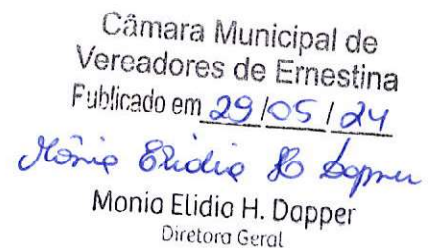 Câmara Municipal de
Vereadores de Ernestina
Publicado em 29/05/24
Mônia Elidia H Dapper
Monia Elidia H. Dapper
Diretora Geral